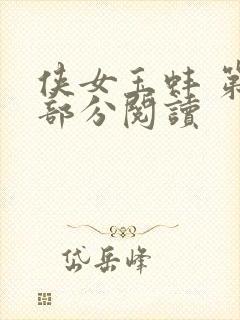 侠女玉蚌 第
部分阅读
岱岳峰